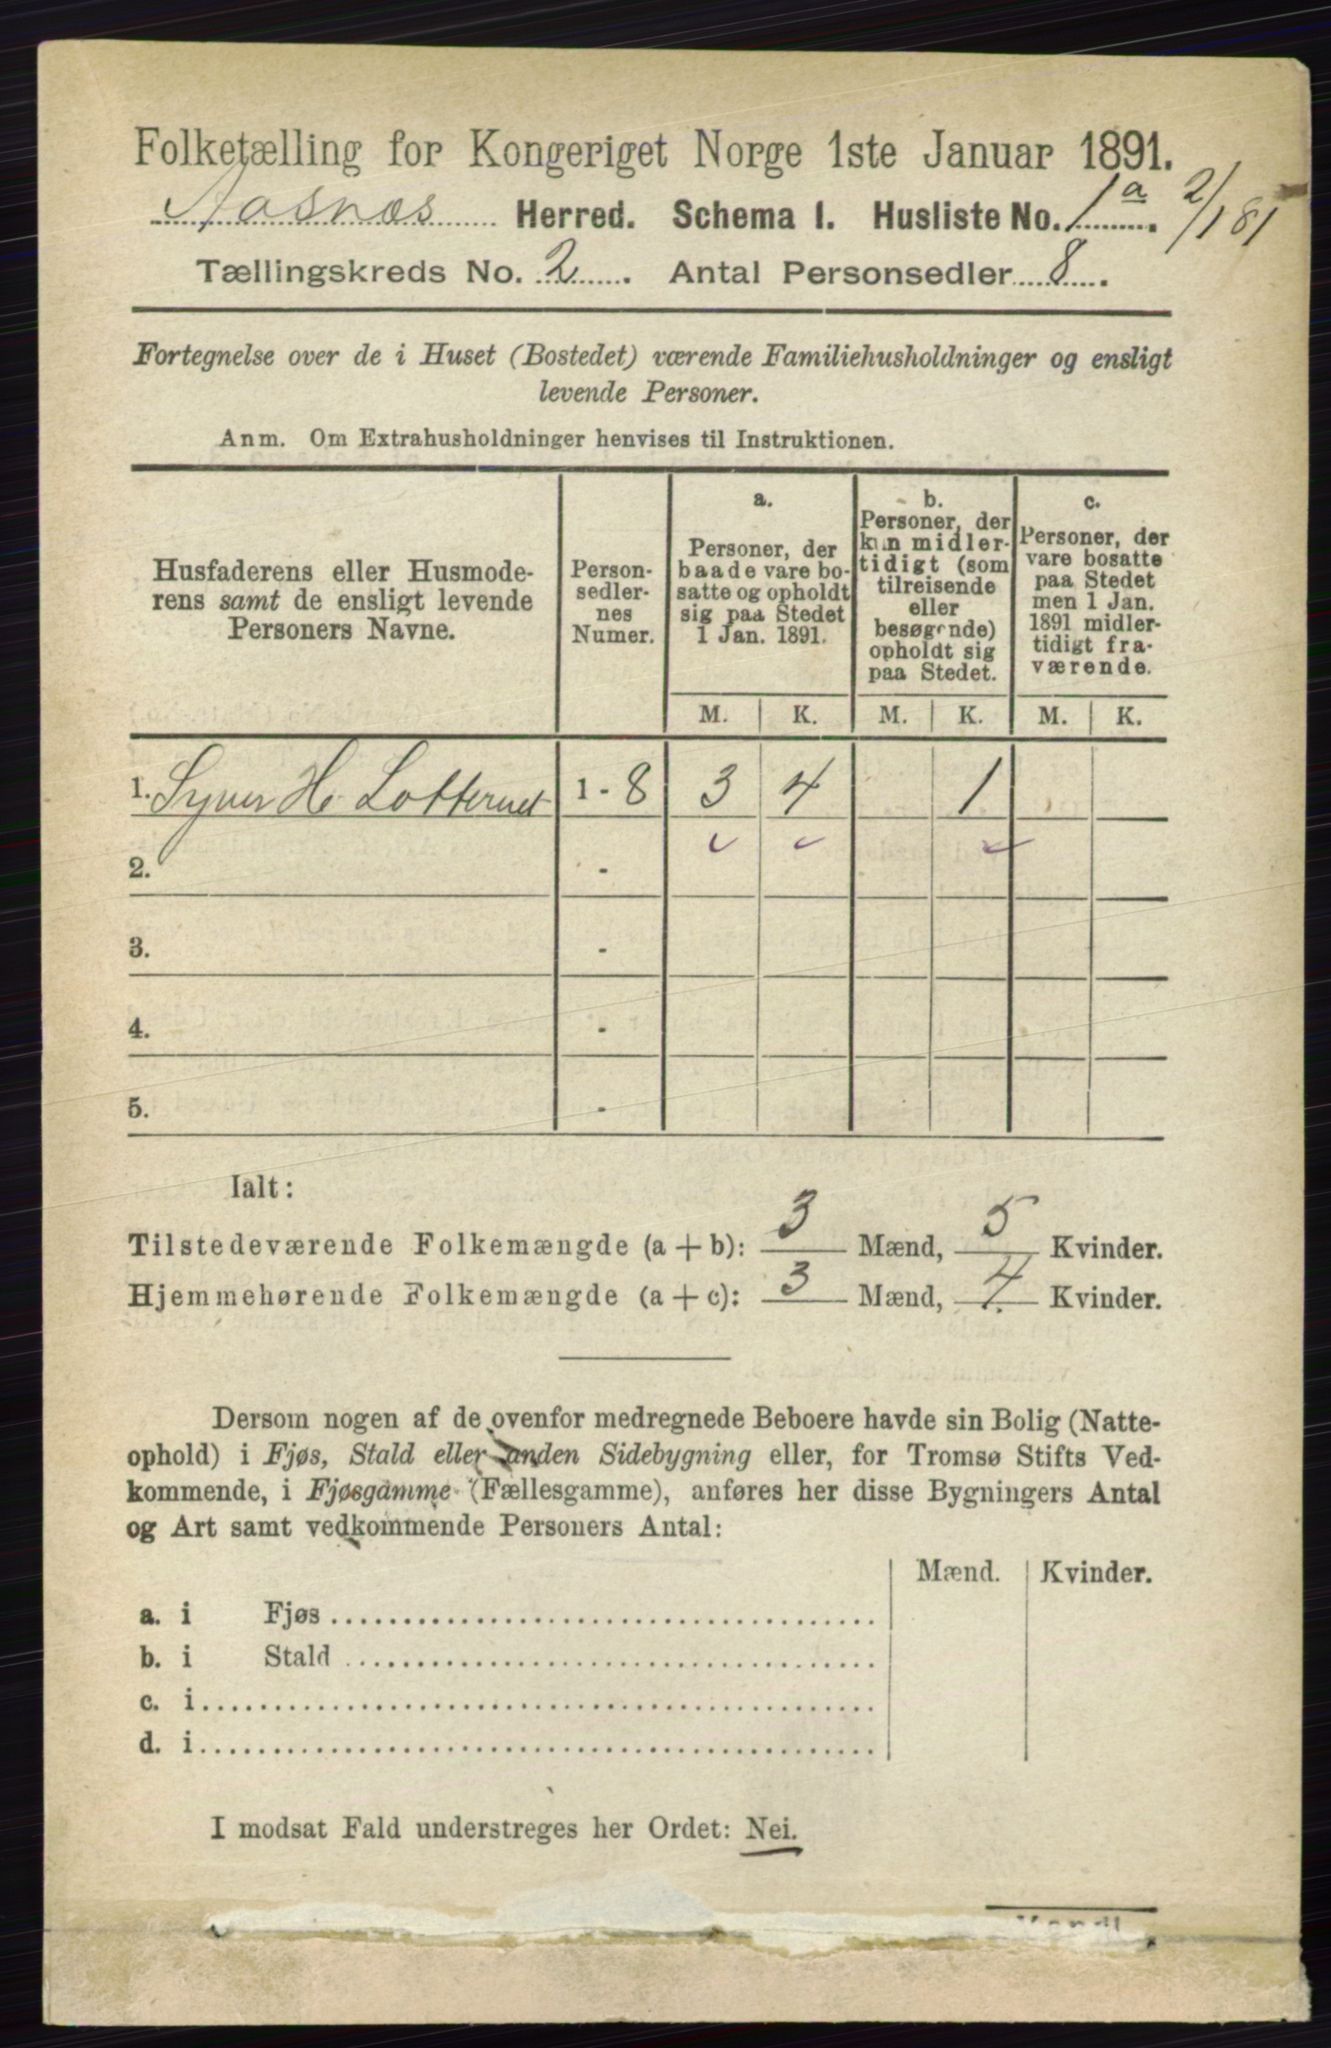 Folketælling for Kongeriget Norge 1ste Januar 1891.
Aasnæs Herred. Schema 1. Husliste No. 1a. 2/181
Tællingskreds No. 2. Antal Personsedler 8.
Fortegnelse over de i Huset (Bostedet) værende Familiehusholdninger og ensligt
levende Personer.
Anm. Om Extrahusholdninger henvises til Instruktionen.
Husfaderens eller Husmode-
rens samt de ensligt levende
Personers Navne.
Person-
sedler-
nes
Numer.
a.
Personer, der
baade vare bo-
satte og opholdt
sig paa Stedet
1 Jan. 1891.
b.
Personer, der
kun midler-
tidigt (som
tilreisende
eller
besøgende)
opholdt sig
paa Stedet.
c.
Personer, der
vare bosatte
paa Stedet
men 1 Jan.
1891 midler-
tidigt fra-
værende.
M. K. M. K. M. K.
1. Syver H. Lotternes 1 - 8 3 4 1
2. -
3. -
4. -
5. -
Ialt:
Tilstedeværende Folkemængde (a + b): 3 Mænd, 5 Kvinder.
Hjemmehørende Folkemængde (a + c): 3 Mænd, 4 Kvinder.
Dersom nogen af de ovenfor medregnede Beboere havde sin Bolig (Natte-
ophold) i Fjøs, Stald eller anden Sidebygning eller, for Tromsø Stifts Ved-
kommende, i Fjøsgamme (Fællesgamme), anføres her disse Bygningers Antal
og Art samt vedkommende Personers Antal:
Mænd. Kvinder.
a. i Fjøs
b. i Stald
c. i
d. i
I modsat Fald understreges her Ordet: Nei.